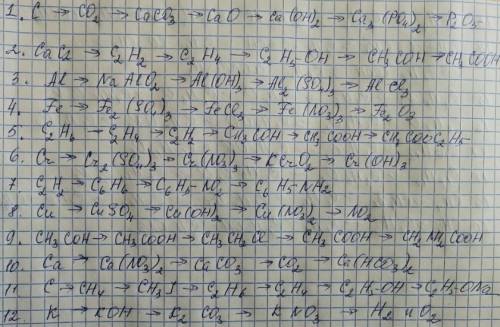 1. C → CO₂ → CaCO₃ → CaO → Ca(OH)₂ → Ca₃(PO₄)₂ → P₂O₅
2. CaC₂ → C₂H₂ → C₂H₄ → C₂H₅-OH → CH₃COH → CH₃COOH
3. Al → NaAlO₂ → Al(OH)₃ → Al₂(SO₄)₃ → AlCl₃
4. Fe → Fe₂(SO₄)₃ → FeCl₃ → Fe(NO₃)₃ → Fe₂O₃
5. C₂H₆ → C₂H₄ → C₂H₂ → CH₃COH → CH₃COOH → CH₃COOC₂H₅
6. Cr → Cr₂(SO₄)₃ → Cr(NO₃)₃ → KCrO₂ → Cr(OH)₃
7. C₂H₂ → C₆H₆ → C₆H₅-NO₂ → C₆H₅-NH₂
8. Cu → CuSO₄ → Cu(OH)₂ → Cu(NO₃)₂ → NO₂
9. CH₃COH → CH₃COOH → CH₃CH₂Cl → CH₃COOH → CH₂NH₂COOH
10. Ca → Ca(NO₃)₂ → CaCO₃ → CO₂ → Ca(HCO₃)₂
11 C → CH₄ → CH₃I → C₂H₆ → C₂H₄ → C₂H₅-OH → C₂H₅-ONa
12. K → KOH → K₂CO₃ → KNO₃ → H₂ и O₂